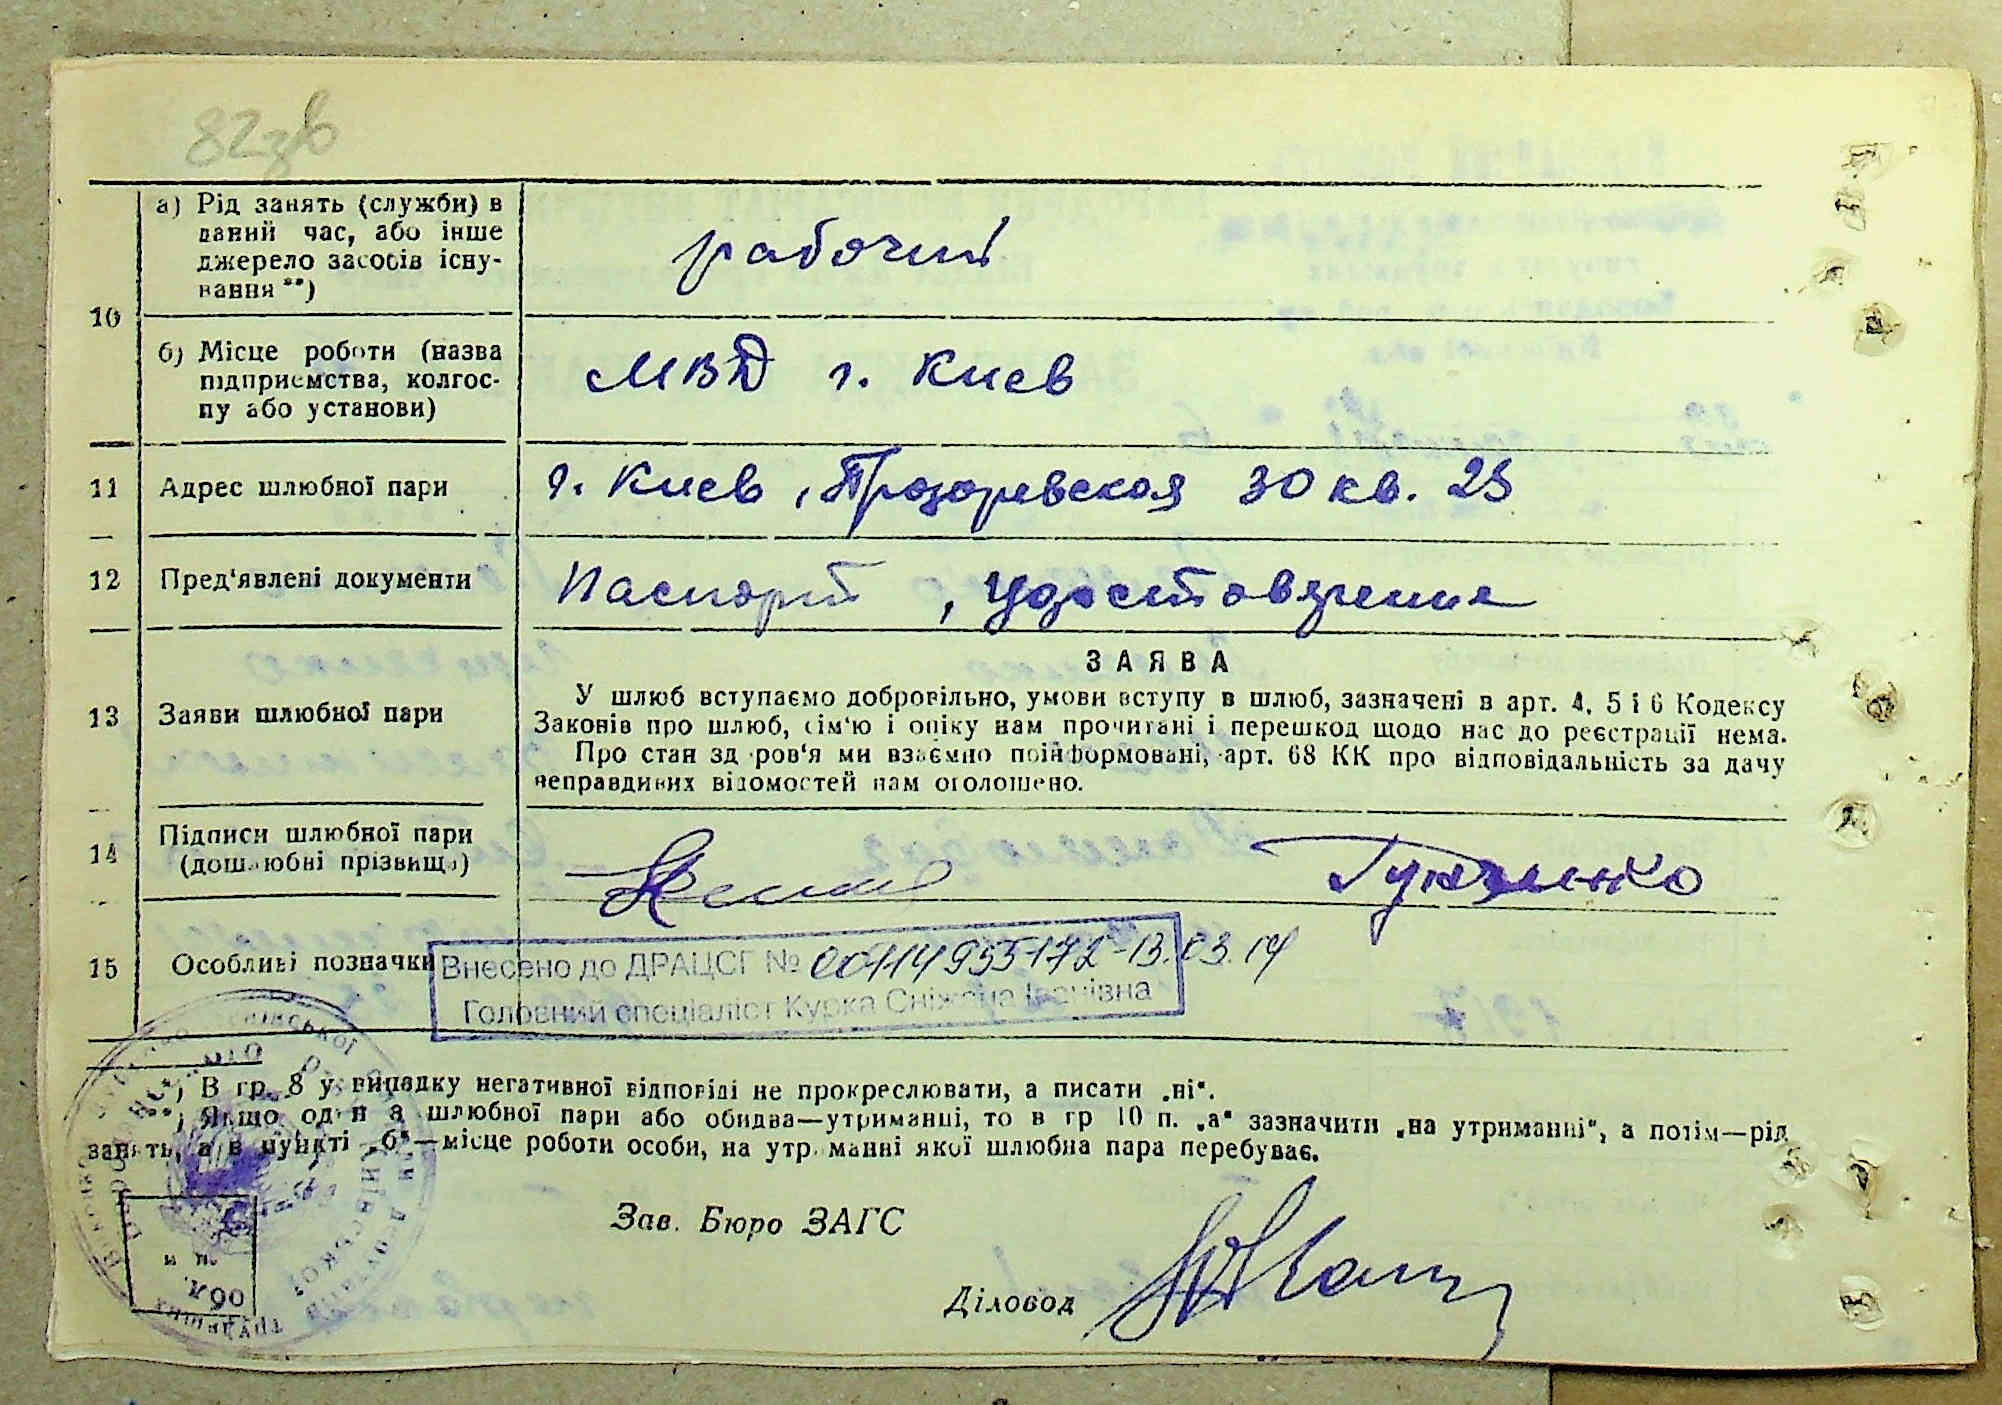 82зв
10
а) Рід занять (служби) в
даний час, або інше
джерело засобів існу-
вання **)
рабочий
б) Місце роботи (назва
підприємства, колгос-
пу або установи)
МВД г. Киев
11 Адрес шлюбної пари
г. Киев, Прозоревская 30 кв. 25
12 Пред'явлені документи
Паспорт, Удостоверение
13 Заяви шлюбної пари
ЗАЯВА
У шлюб вступаємо добровільно, умови вступу в шлюб, зазначені в арт. 4, 5 і 6 Кодексу
Законів про шлюб, сім'ю і опіку нам прочитані і перешкод щодо нас до реєстрації нема.
Про стан здоров'я ми взаємно поінформовані, арт. 68 КК про відповідальність за дачу
неправдивих відомостей нам оголошено.
14 Підписи шлюбної пари
(дошлюбні прізвища)
15 Особливі позначки
Внесено до ДРАЦСГ № 00114955172-13.03.14
Головний спеціаліст Курка Сніжана Іванівна
*) В гр. 8 у випадку негативної відповіді не прокреслювати, а писати „ні“.
**) Якщо один з шлюбної пари або обидва—утриманці, то в гр 10 п. „а“ зазначити „на утриманні“, а потім—рід
занять, а в пункті „б“—місце роботи особи, на утриманні якої шлюбна пара перебуває.
Зав. Бюро ЗАГС
Діловод